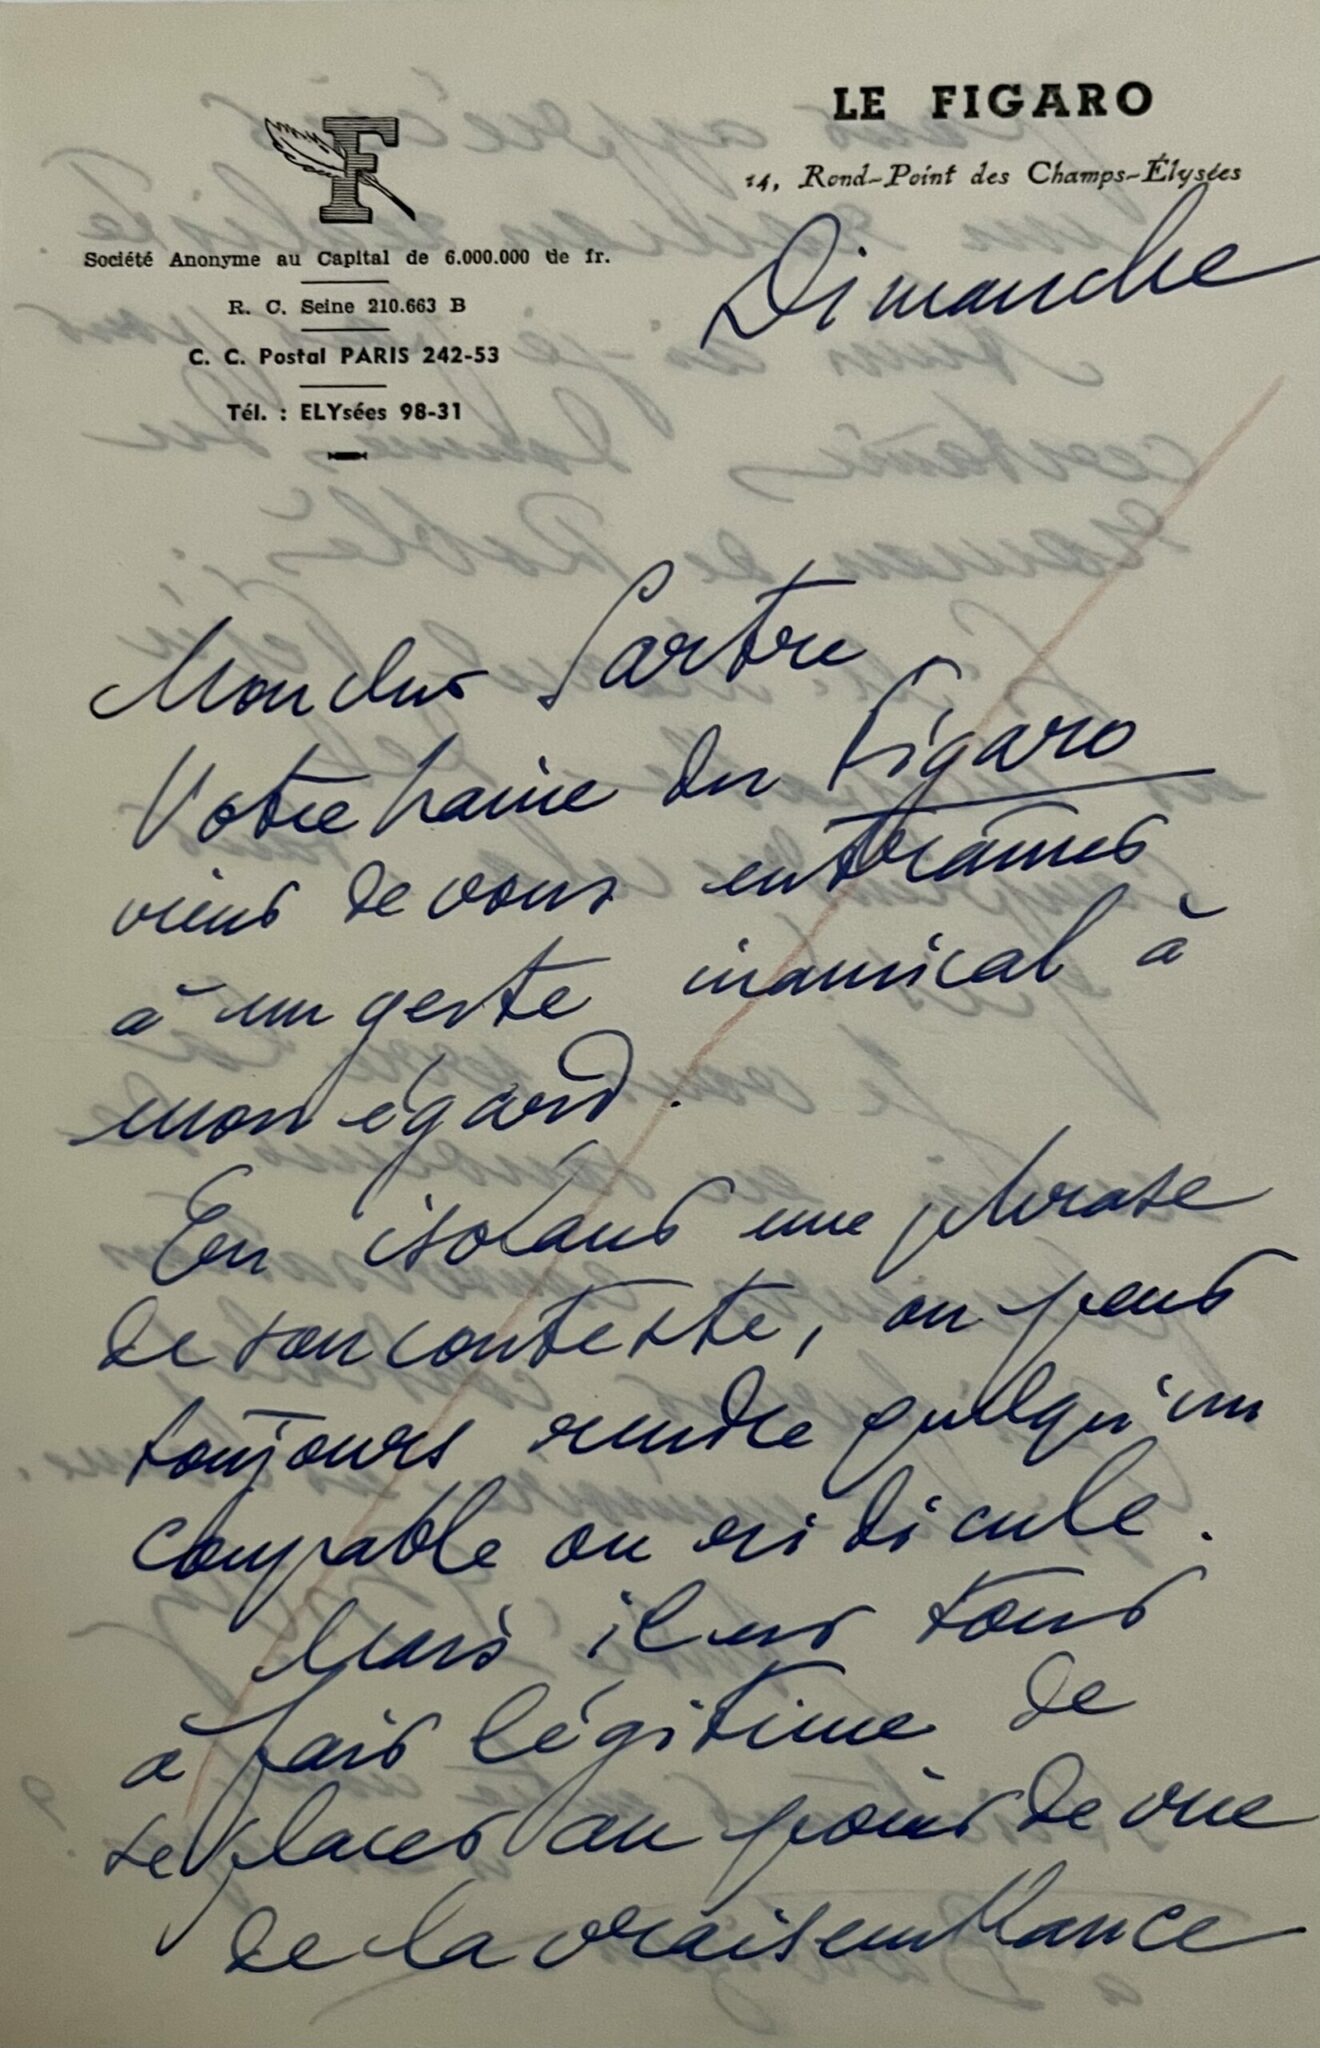 LE FIGARO
14, Rond-Point des Champs-Élysées
F
Société Anonyme au Capital de 6.000.000 de fr.
R. C. Seine 210.663 B
C. C. Postal PARIS 242-53
Tél. : ELYsées 98-31
Dimanche
Mon cher Sartre
Votre haine du Figaro
vient de vous entraîner
à un geste inamical à
mon égard.
En isolant une phrase
de son contexte, on peut
toujours rendre quelqu'un
coupable ou ridicule.
Mais il est tout
à fait légitime de
se placer au point de vue
de la vraisemblance